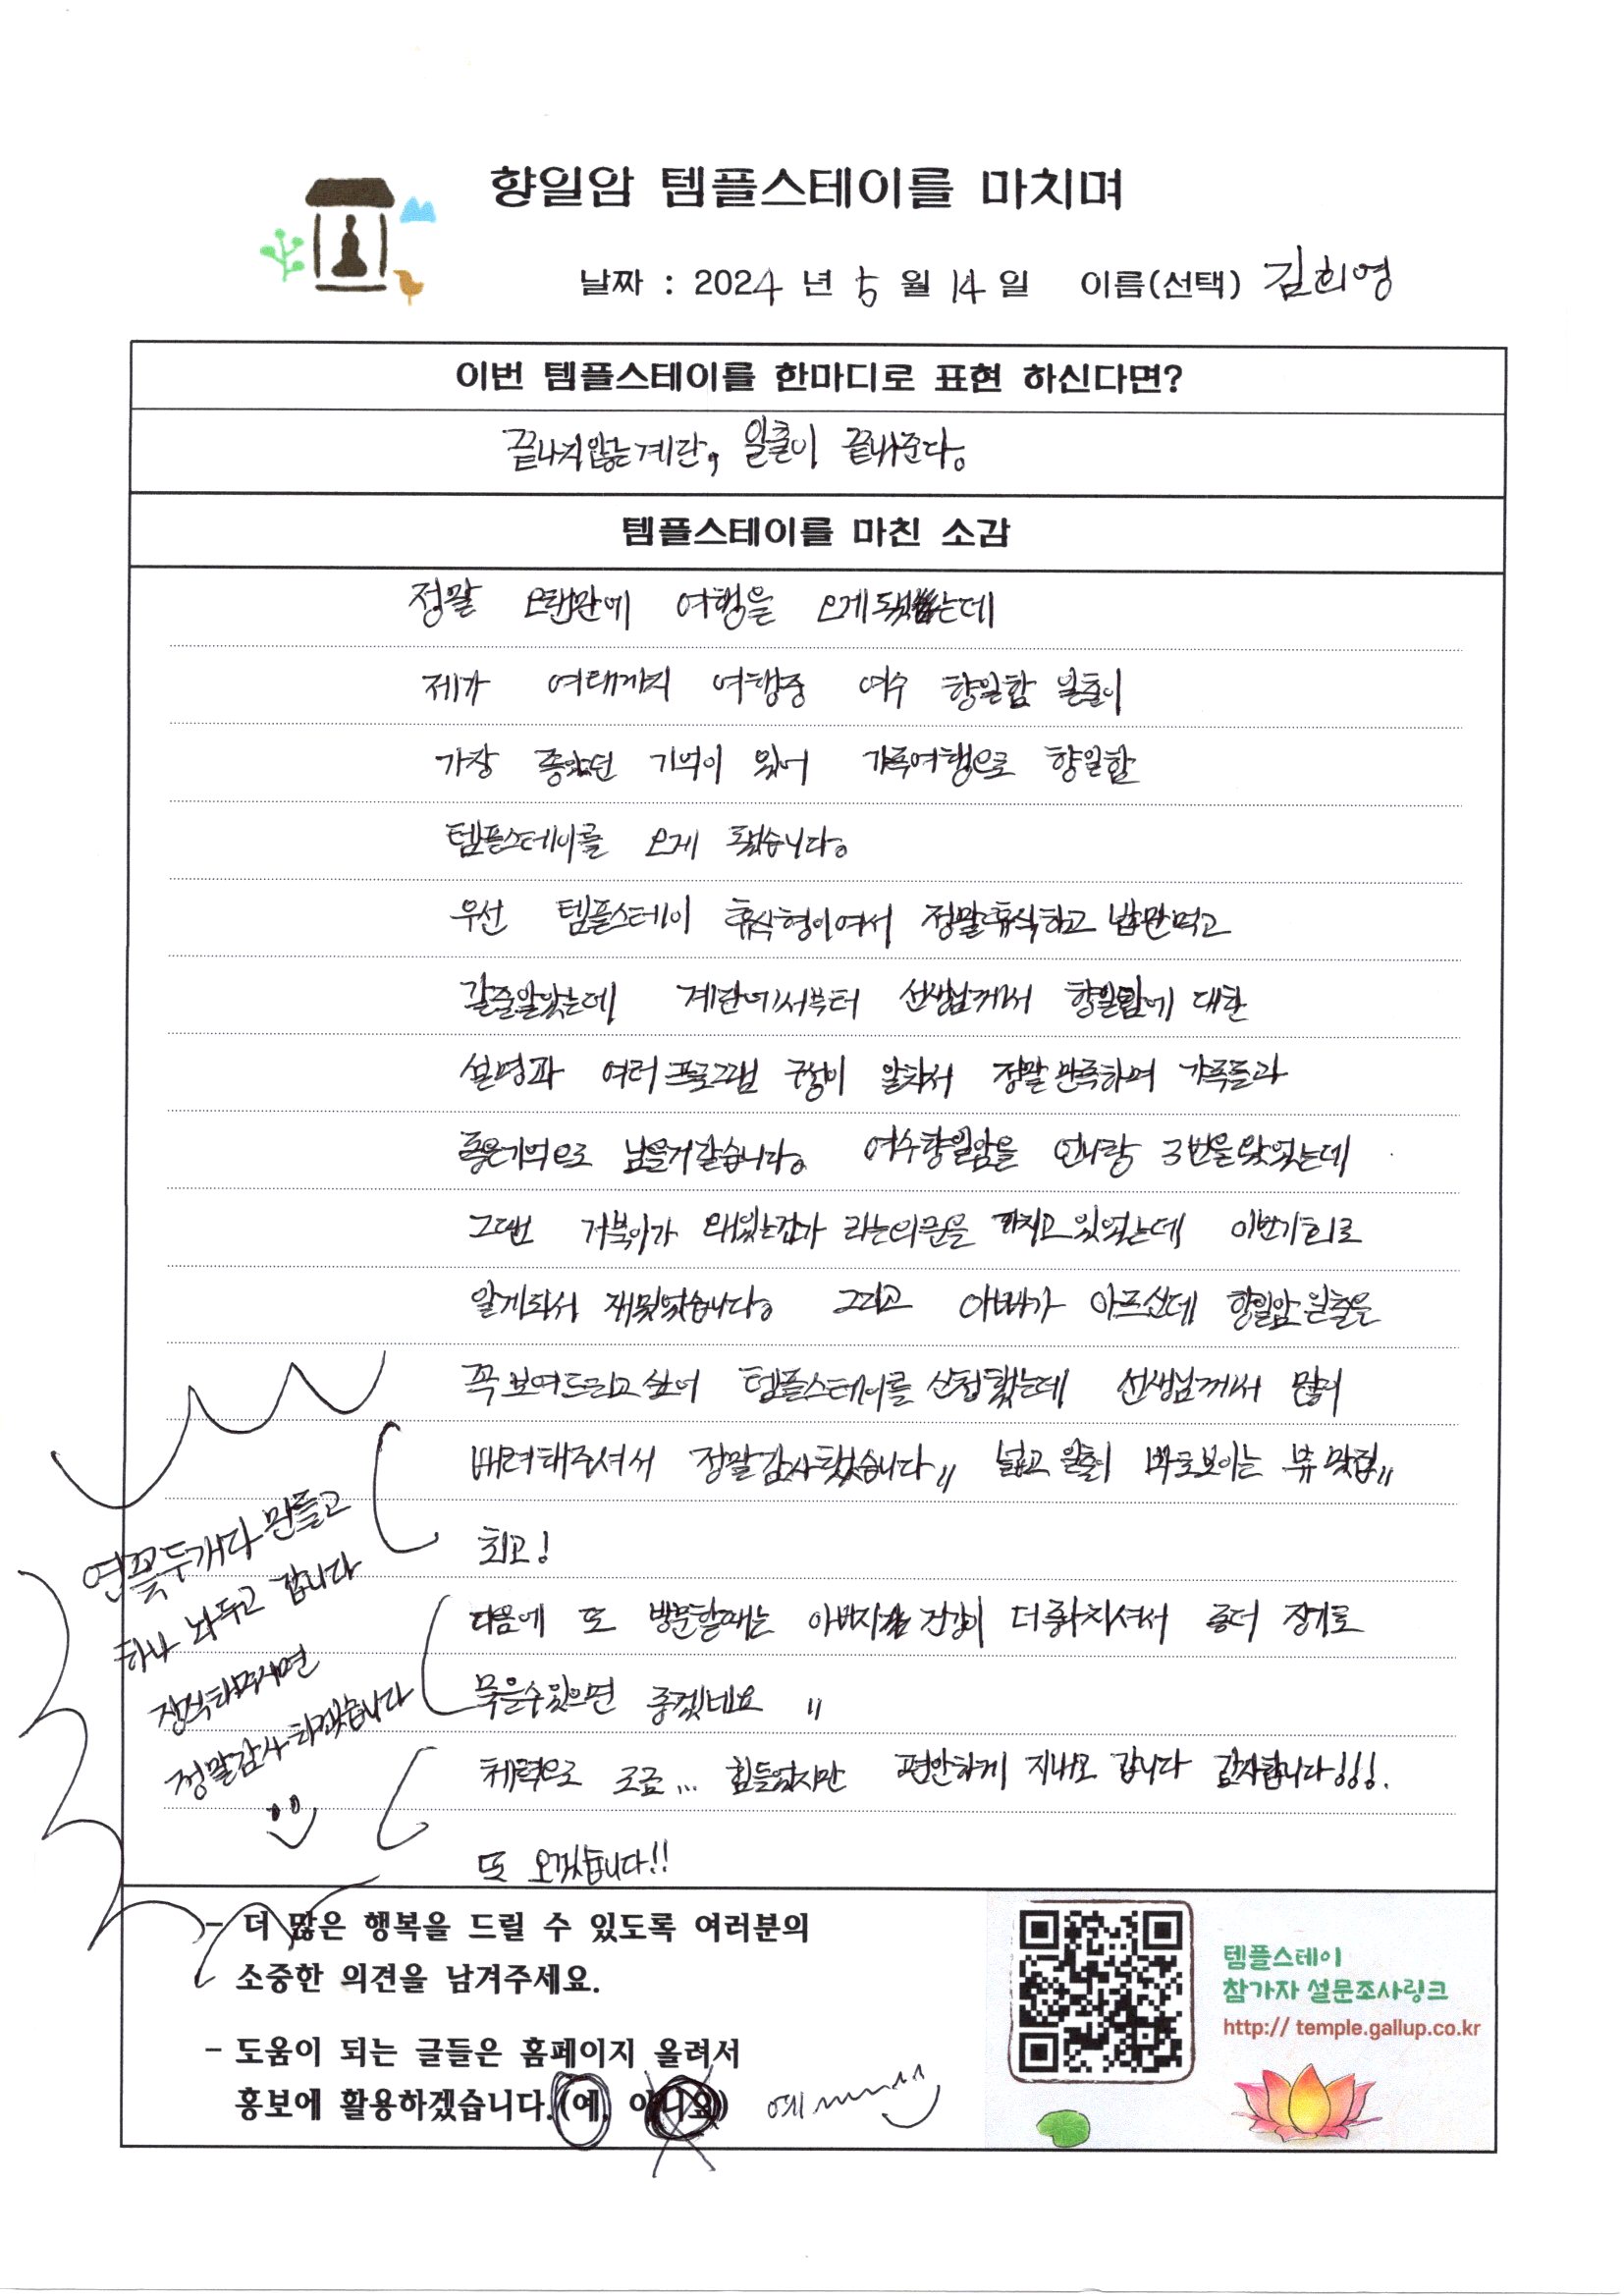 향일암 템플스테이를 마치며
날짜 : 2024 년 5 월 14 일 이름(선택) 김희영
이번 템플스테이를 한마디로 표현 하신다면?
끝나지않는계단, 일출이 끝내준다.
템플스테이를 마친 소감
정말 오랜만에 여행을 오게됐는데
제가 여태까지 여행중 여수 향일함 일출이
가장 좋았던 기억이 있어 가족여행으로 향일함
템플스테이를 오게 됐습니다.
우선 템플스테이 휴식형이여서 정말휴식하고 밥만먹고
갈줄알았는데 계단에서부터 선생님께서 향일암에 대한
설명과 여러 프로그램 구성이 알차서 정말 만족하며 가족들과
좋은기억으로 남을거같습니다. 여수향일암을 언니랑 3번을왔었는데
그땐 거북이가 왜있는건가 라는의문을 가지고있었는데 이번기회로
알게되서 재밌었습니다. 그리고 아빠가 아프신데 향일암 일출을
꼭보여드리고싶어 템플스테이를 신청했는데 선생님께서 많이
배려해주셔서 정말감사했습니다" 넓고 일출이 바로보이는 뷰 맛집"
최고!
다음에 또 방문할때는 아버지 건강이 더좋아지셔서 좀더 장기로
묵을수있으면 좋겠네요 "
체력으로 조금... 힘들었지만 편안하게 지내고 갑니다 감사합니다!!!.
또 오겠습니다!!
연꽃두개다 만들고
하나 놔두고 갑니다
장식해주시면
정말감사하겠습니다
- 더 많은 행복을 드릴 수 있도록 여러분의
소중한 의견을 남겨주세요.
- 도움이 되는 글들은 홈페이지 올려서
홍보에 활용하겠습니다.(예, 아니오) 예
템플스테이
참가자 설문조사링크
http:// temple.gallup.co.kr